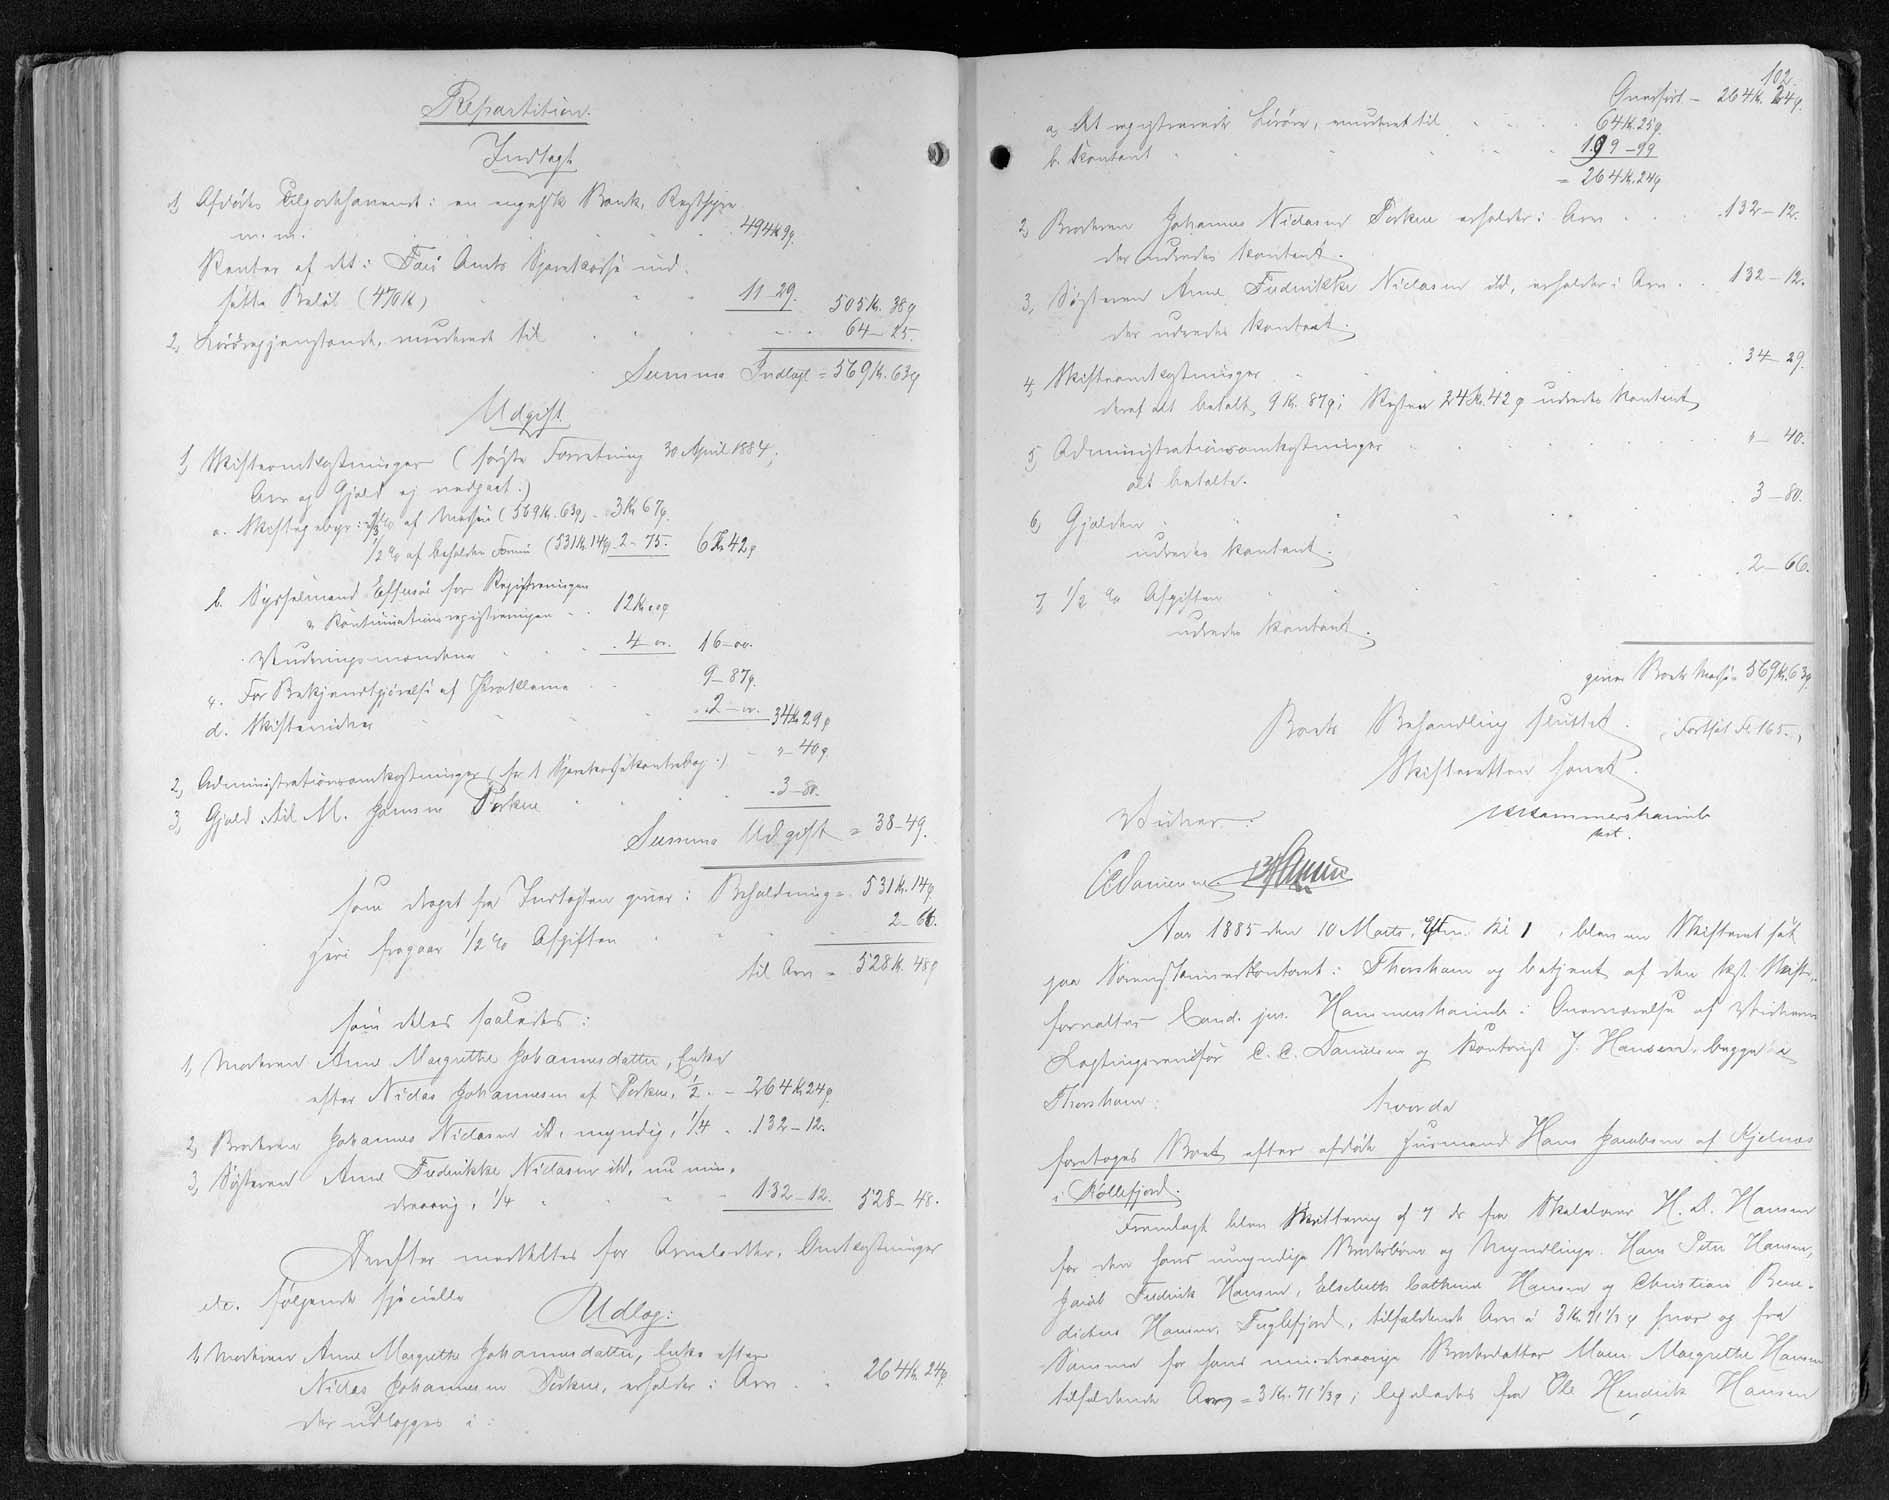 Repartition.
Indtægt
1) Afdødes Tilgodehavende i en engelsk Bank, Restsum
m. m. 494 K 9 ø.
Renter af det i Færø Amts Sparekasse ind-
satte Beløb (470 K) 11 - 29. 505 K. 38 ø
2, Løsøregjenstande, vurderede til 64 - 25.
Summa Indtægt = 569 K. 63 ø
Udgift.
1, Skifteomkostninger (første Forretning 30 April 1884;
Arv og Gjæld ej vedgaaet.)
a. Skiftegebyr: 2/3 % af Massen (569 K. 63 ø) - 3 K 67 ø.
1/2 % af beholden Formue (531 K. 14 ø) 2 - 75. 6 K 42 ø
b. Sysselmand Effersøe for Registreringen
& Kontinuationsregistreringen - 12 K 00 ø
Vurderingsmændene 4 - 00. 16 - 00.
c. For Bekjendtgjørelse af Proklama 9 - 87 ø.
d. Skiftevidner 2 - 00. 34 K 29 ø
2, Administrationsomkostninger (for 1 Sparekassekontrabog.) - " - 40 ø.
3, Gjæld til M. Jensen Porkere 3 - 80.
Summa Udgift = 38 - 49.
som draget fra Indtægten giver: Beholdning = 531 K. 14 ø
heri fragaar 1/2 % Afgiften 2 - 66.
til Arv = 528 K. 48 ø
som deles saaledes:
1, Moderen Anne Margrethe Johannesdatter, Enke
efter Niclas Johannesen af Porkere, 1/2. - 264 K 24 ø
2, Broderen Johannes Niclasen ibd. myndig, 1/4 - 132 - 12.
3, Søsteren Anne Fredrikke Niclasen ibd. nu min-
dreaarig, 1/4 132 - 12. 528 - 48.
Derefter meddeltes for Arvelodder, Omkostninger
etc. følgende specielle
Udlæg:
1, Moderen Anne Margrethe Johannesdatter, Enke efter
Niclas Johannesen Porkere, erholder i Arv 264 K. 24 ø.
der udlægges i:
102.
Overført - 264 K. 24 ø.
a, det registrerede Løsøre, vurderet til 64 K. 25 ø.
b. Kontant 199 - 99
= 264 K. 24 ø
2, Broderen Johannes Niclasen Porkere erholder i Arv 132 - 12.
der udredes kontant.
3, Søsteren Anne Fredrikke Niclasen ibd, erholder i Arv 132 - 12.
der udredes kontant.
4, Skifteomkostninger 34 - 29.
deraf alt betalt 9 K. 87 ø; Resten 24 K. 42 ø udredes kontant
5, Administrationsomkostninger " - 40.
alt betalte.
6, Gjælden 3 - 80.
udredes kontant.
7, 1/2 % Afgiften 2 - 66.
udredes kontant.
giver Boets Masse = 569 K. 63 ø
Boets Behandling sluttet. (Fortsat Fol. 165.)
Skifteretten hævet.
Hammershaimb
kst.
Vidner:
CCDanielsen JHansen
Aar 1885 den 10 Marts, Eftm. Kl 1, blev en Skifteret sat
paa Sorenskriverkontoret i Thorshavn og betjent af den kst. Skifte-
forvalter Cand. jur. Hammershaimb i Overværelse af Vidnerne
Lagtingsrevisor C. C. Danielsen og Kontorist J. Hansen, begge i
Thorshavn:
hvorda
foretoges Boet efter afdøde Huusmand Hans Jacobsen af Kjelnæs
i Kollefjord.
Fremlagt blev Kvittering af 7 ds fra Skolelærer H. D. Hansen
for den hans umyndige Broderbørn og Myndlinge Hans Peter Hansen,
Jacob Fredrik Hansen, Elsebeth Cathrine Hansen og Christian Bene-
dictus Hansen, Fuglefjord, tilfaldende Arv á 3 Kr. 71 1/3 ø hver og fra
Samme for hans mindreaarige Broderdatter Maren Margrethe Hansen
tilfaldende Arv = 3 Kr. 71 1/3 ø; ligeledes fra Ole Hendrik Hansen